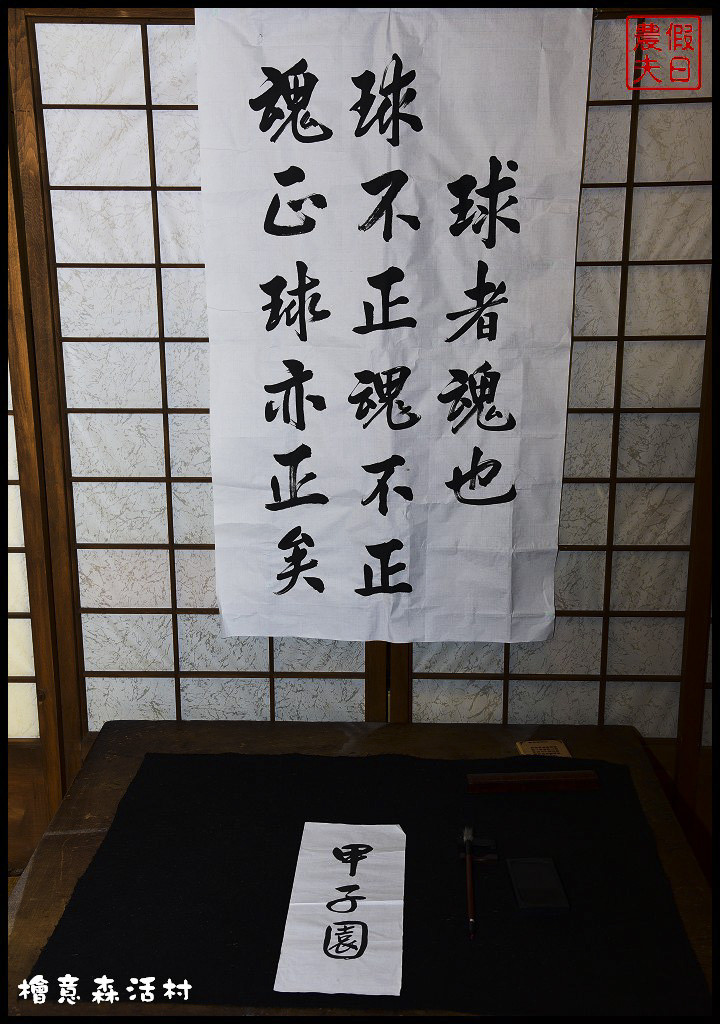 球者魂也
球不正魂不正
魂正球亦正矣
甲子園
假日
農夫
檜意森活村